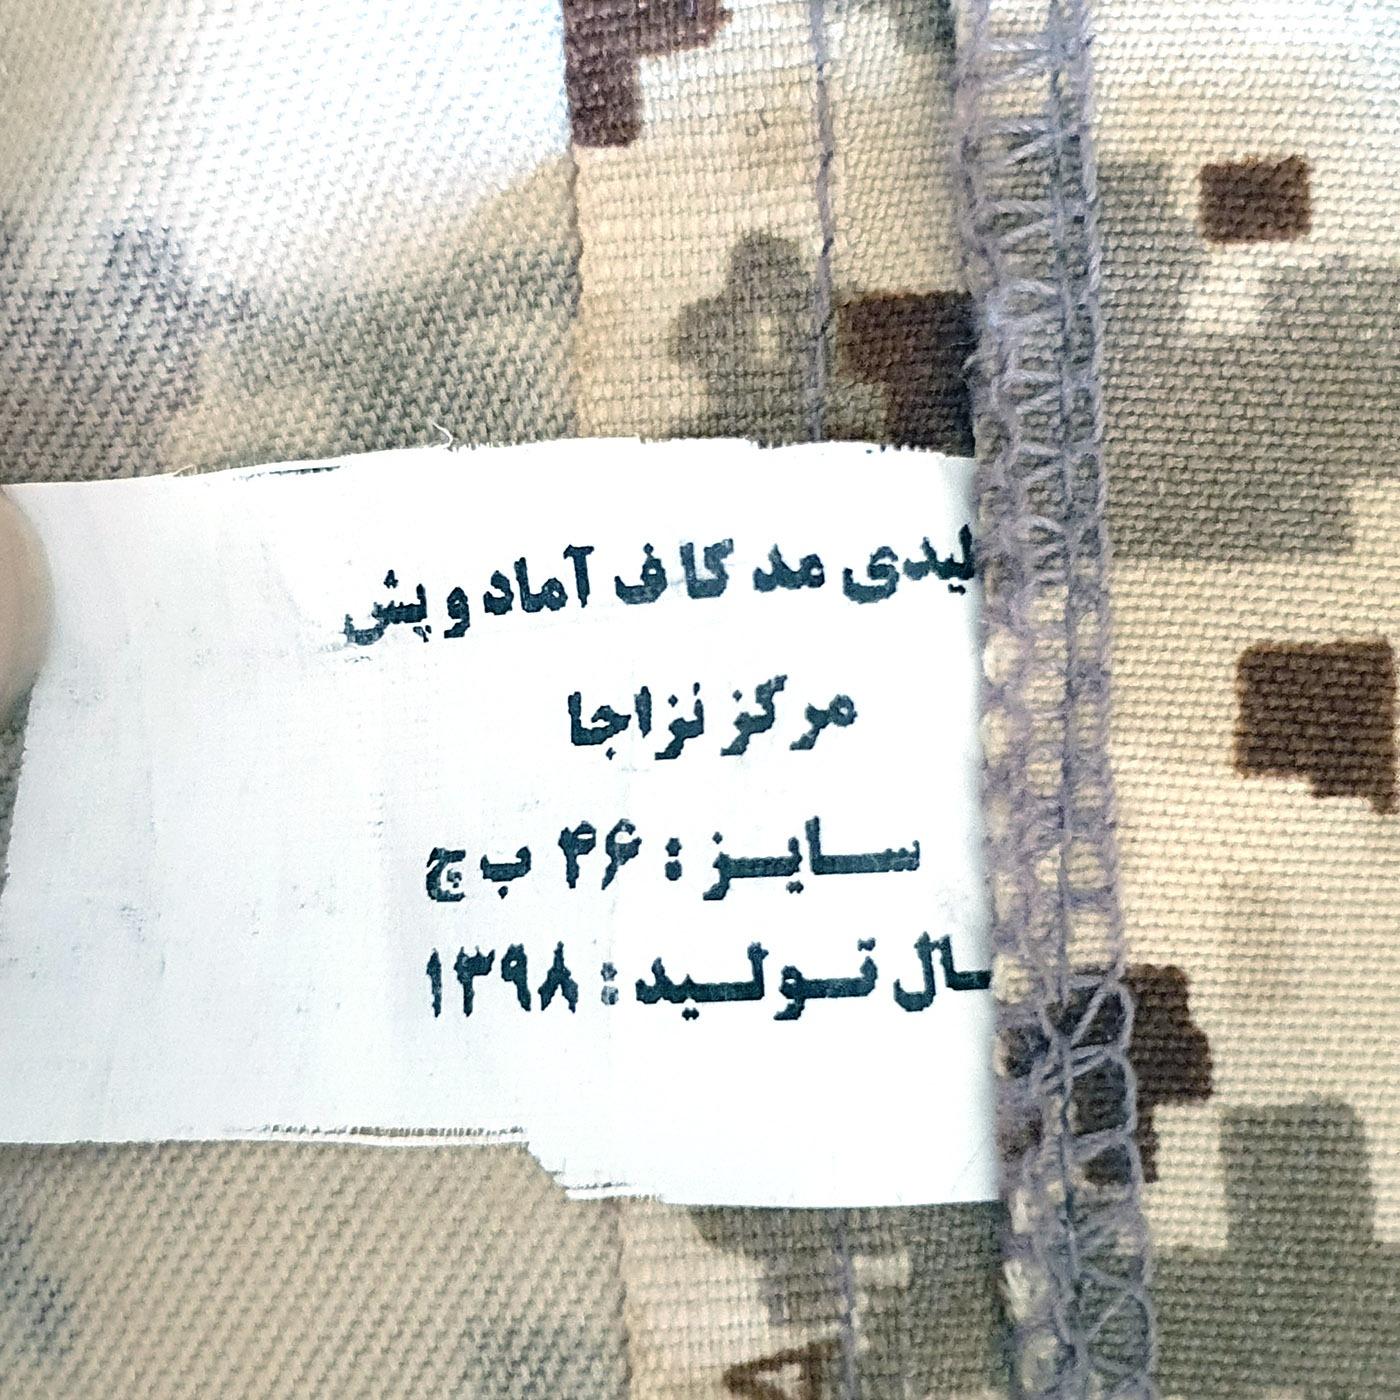 لیدی مد کاف آماد و پش
مرکز نزاجا
سایز : ۴۶ ب ج
ال تولید : ۱۳۹۸